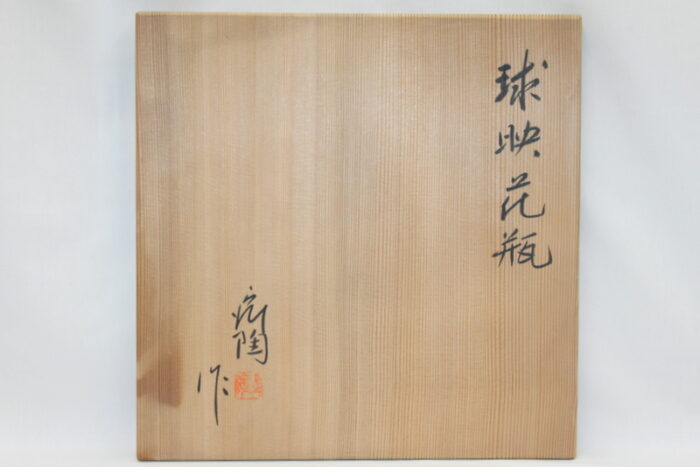 球映花瓶
陶
作